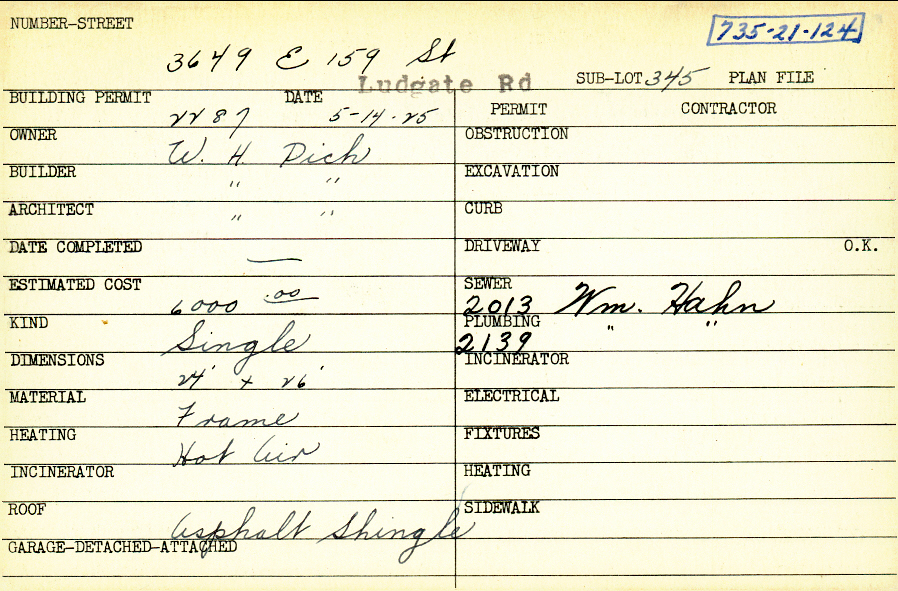 NUMBER-STREET
735-21-124
3649 E 159 St
Ludgate Rd
SUB-LOT 345 PLAN FILE
BUILDING PERMIT 2287 DATE 5-14-25
PERMIT CONTRACTOR
OWNER W. H. Dich
OBSTRUCTION
BUILDER " "
EXCAVATION
ARCHITECT " "
CURB
DATE COMPLETED —
DRIVEWAY O.K.
ESTIMATED COST 6000.00
SEWER 2013 Wm. Hahn
KIND Single
PLUMBING 2139 " "
DIMENSIONS 24' x 26'
INCINERATOR
MATERIAL Frame
ELECTRICAL
HEATING Hot Air
FIXTURES
INCINERATOR
HEATING
ROOF Asphalt Shingle
SIDEWALK
GARAGE-DETACHED-ATTACHED